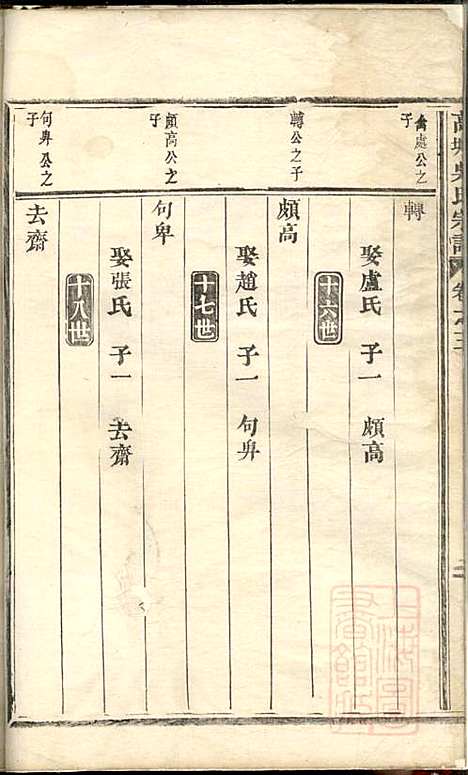 高㙟吳氏宗譜 卷之三
禽處公之子
轉
娶盧氏 子一 頗高
十六世
轉公之子
頗高
娶趙氏 子一 句卑
十七世
頗高公之子
句卑
娶張氏 子一 去齋
十八世
句卑公之子
去齋